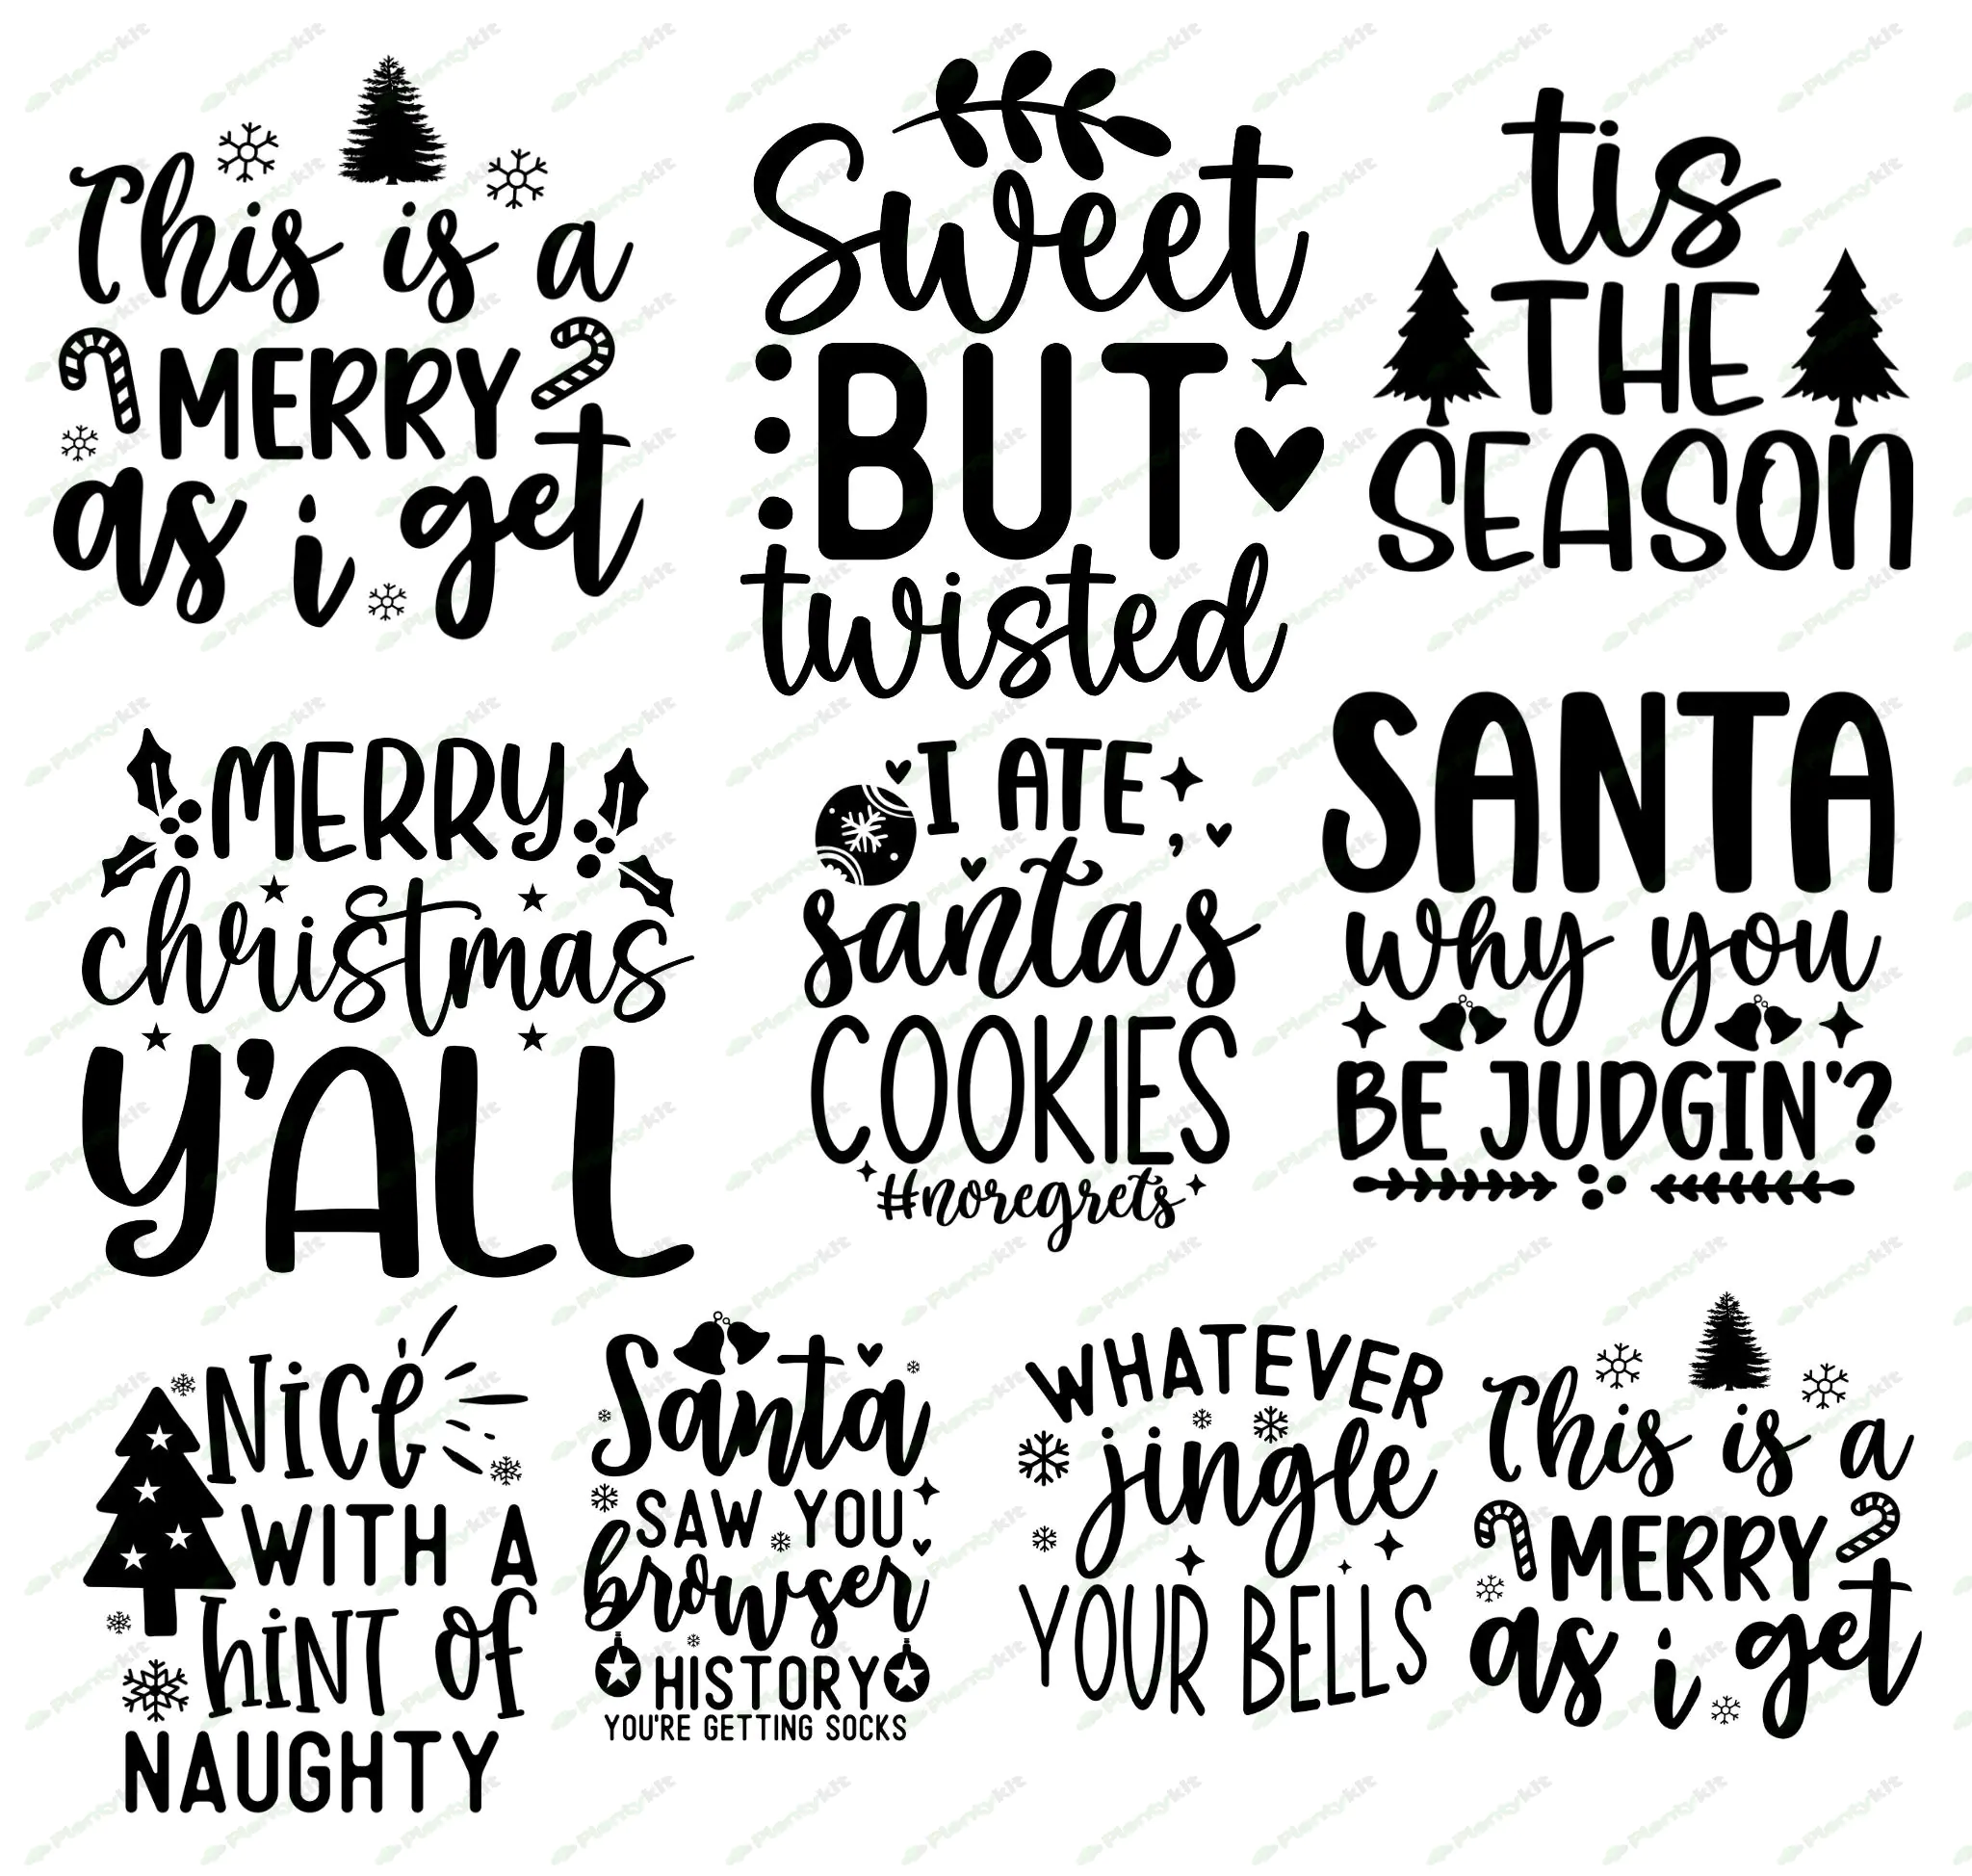 This is a
MERRY
as i get
Sweet
BUT
twisted
tis
THE
SEASON
MERRY
christmas
Y'ALL
I ATE,
santa's
COOKIES
#noregrets
SANTA
why you
BE JUDGIN'?
NiCe
WITH A
hiNT of
NAUGHTY
Santa
SAW YOU
browser
HISTORY
YOU'RE GETTING SOCKS
WHATEVER
jingle
YOUR BELLS
This is a
MERRY
as i get
Plentykit